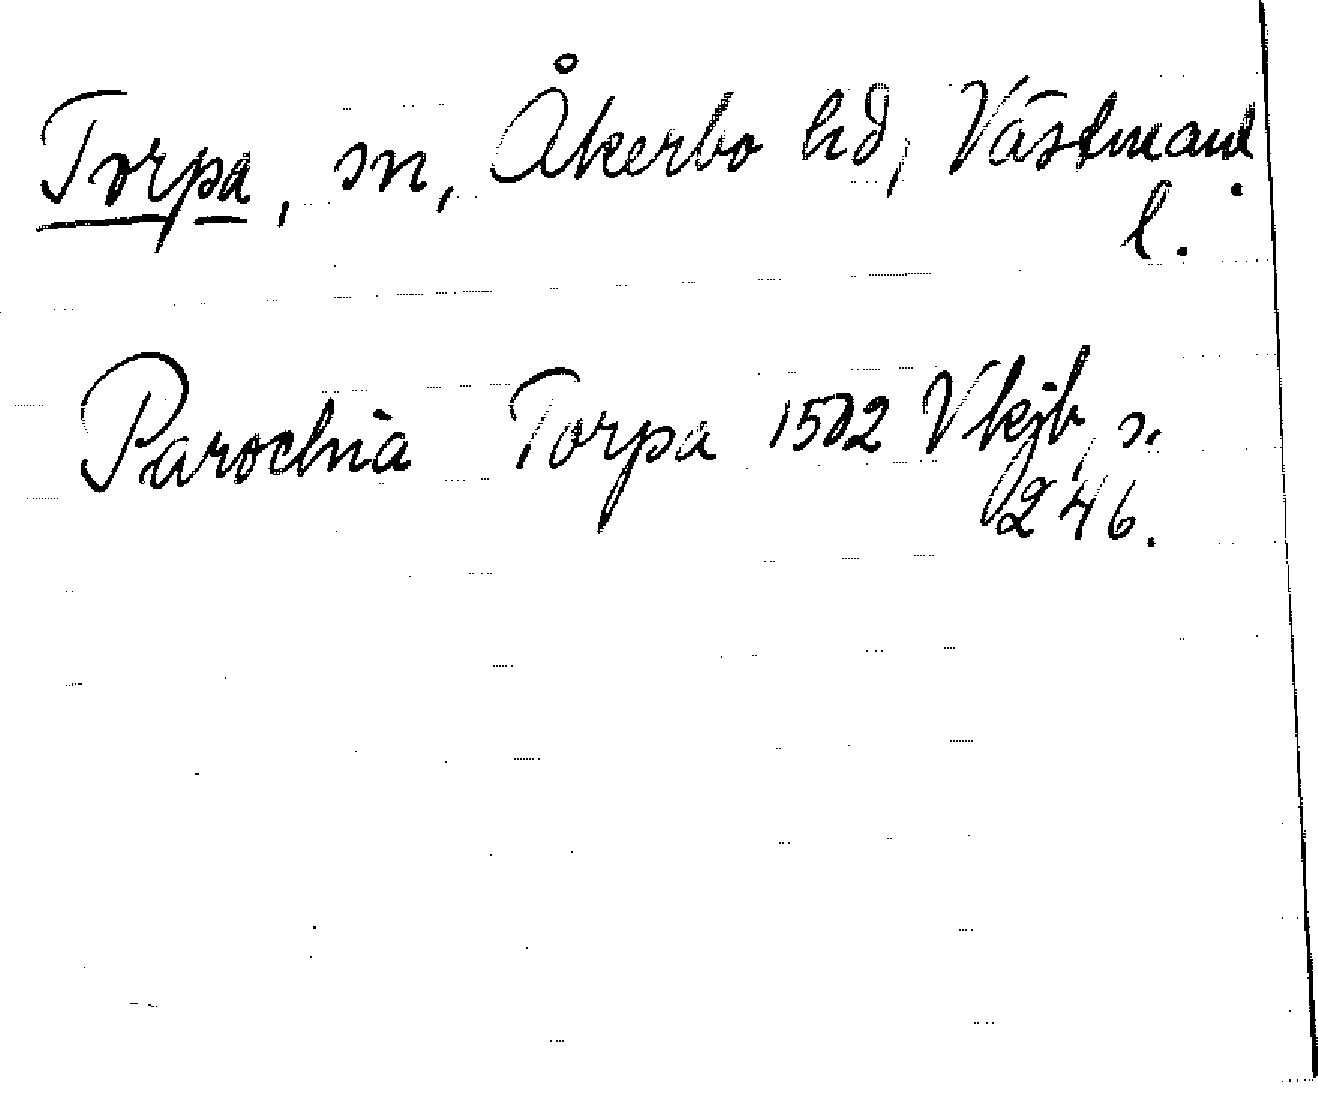 Torpa, sn, Åkerbo hd, Västmanl.
l.
Parochia Torpa 1502 Vkjb, s.
246.